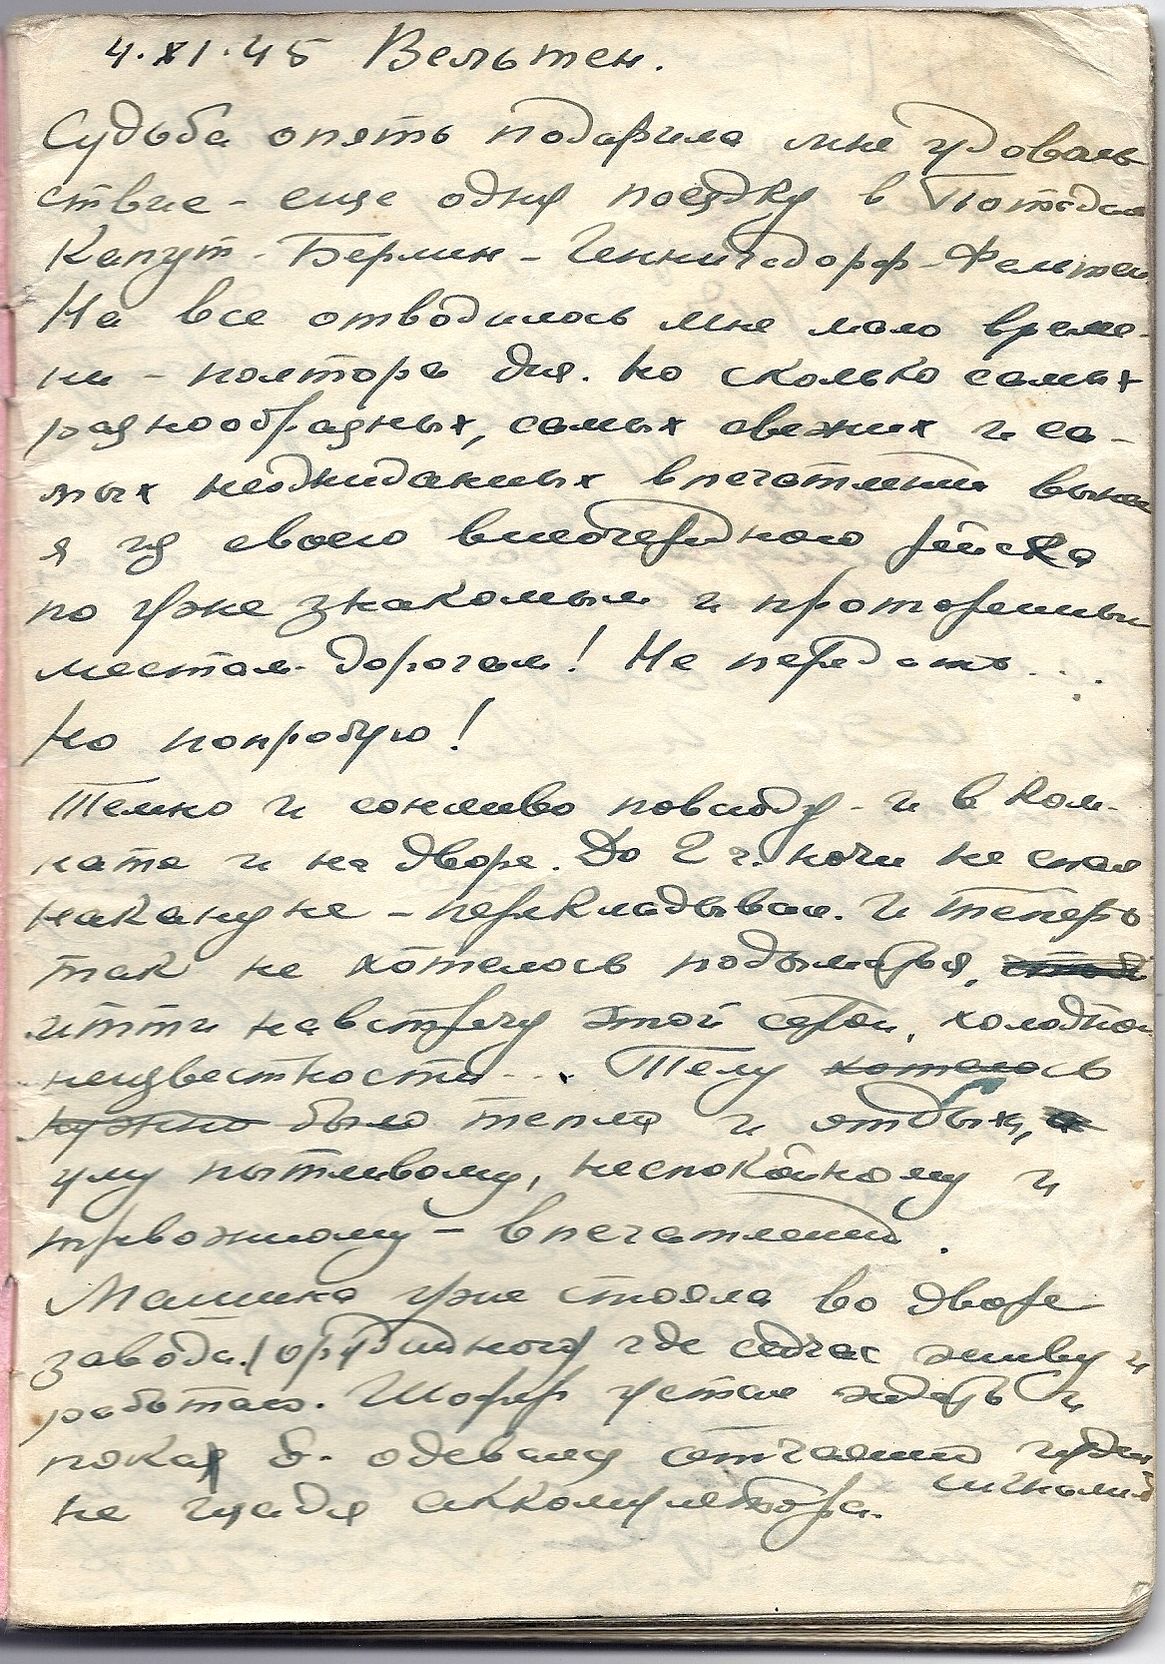 4.XI.45 Вельтен.
Судьба опять подарила мне удоволь
ствие - еще одну поездку в Потсдам
Капут - Берлин - Геннигсдорф - Фельтен
На все отводилось мне мало време-
ни - полтора дня. Но сколько самых
разнообразных, самых свежих и са-
мых неожиданных впечатлений вынес
я из своего внеочередного рейса
по уже знакомым и проторенным
местам-дорогам! Не передать...
Но попробую!
Темно и сонливо повсюду - и в ком-
нате и на дворе. До 2 г. ночи не спал
накануне - перекладывал. И теперь
так не хотелось подыматься,
итти навстречу этой серой, холодной
неизвестности... Телу хотелось
нужно было тепла и отдыха,
уму пытливому, неспокойному и
тревожному - впечатлений.
Машина уже стояла во дворе
завода (орудийного) где сейчас живу и
работаю. Шофер устал ждать и
пока я б. одевался отчаянно гудел
сигналил
не щадя аккомулятора.